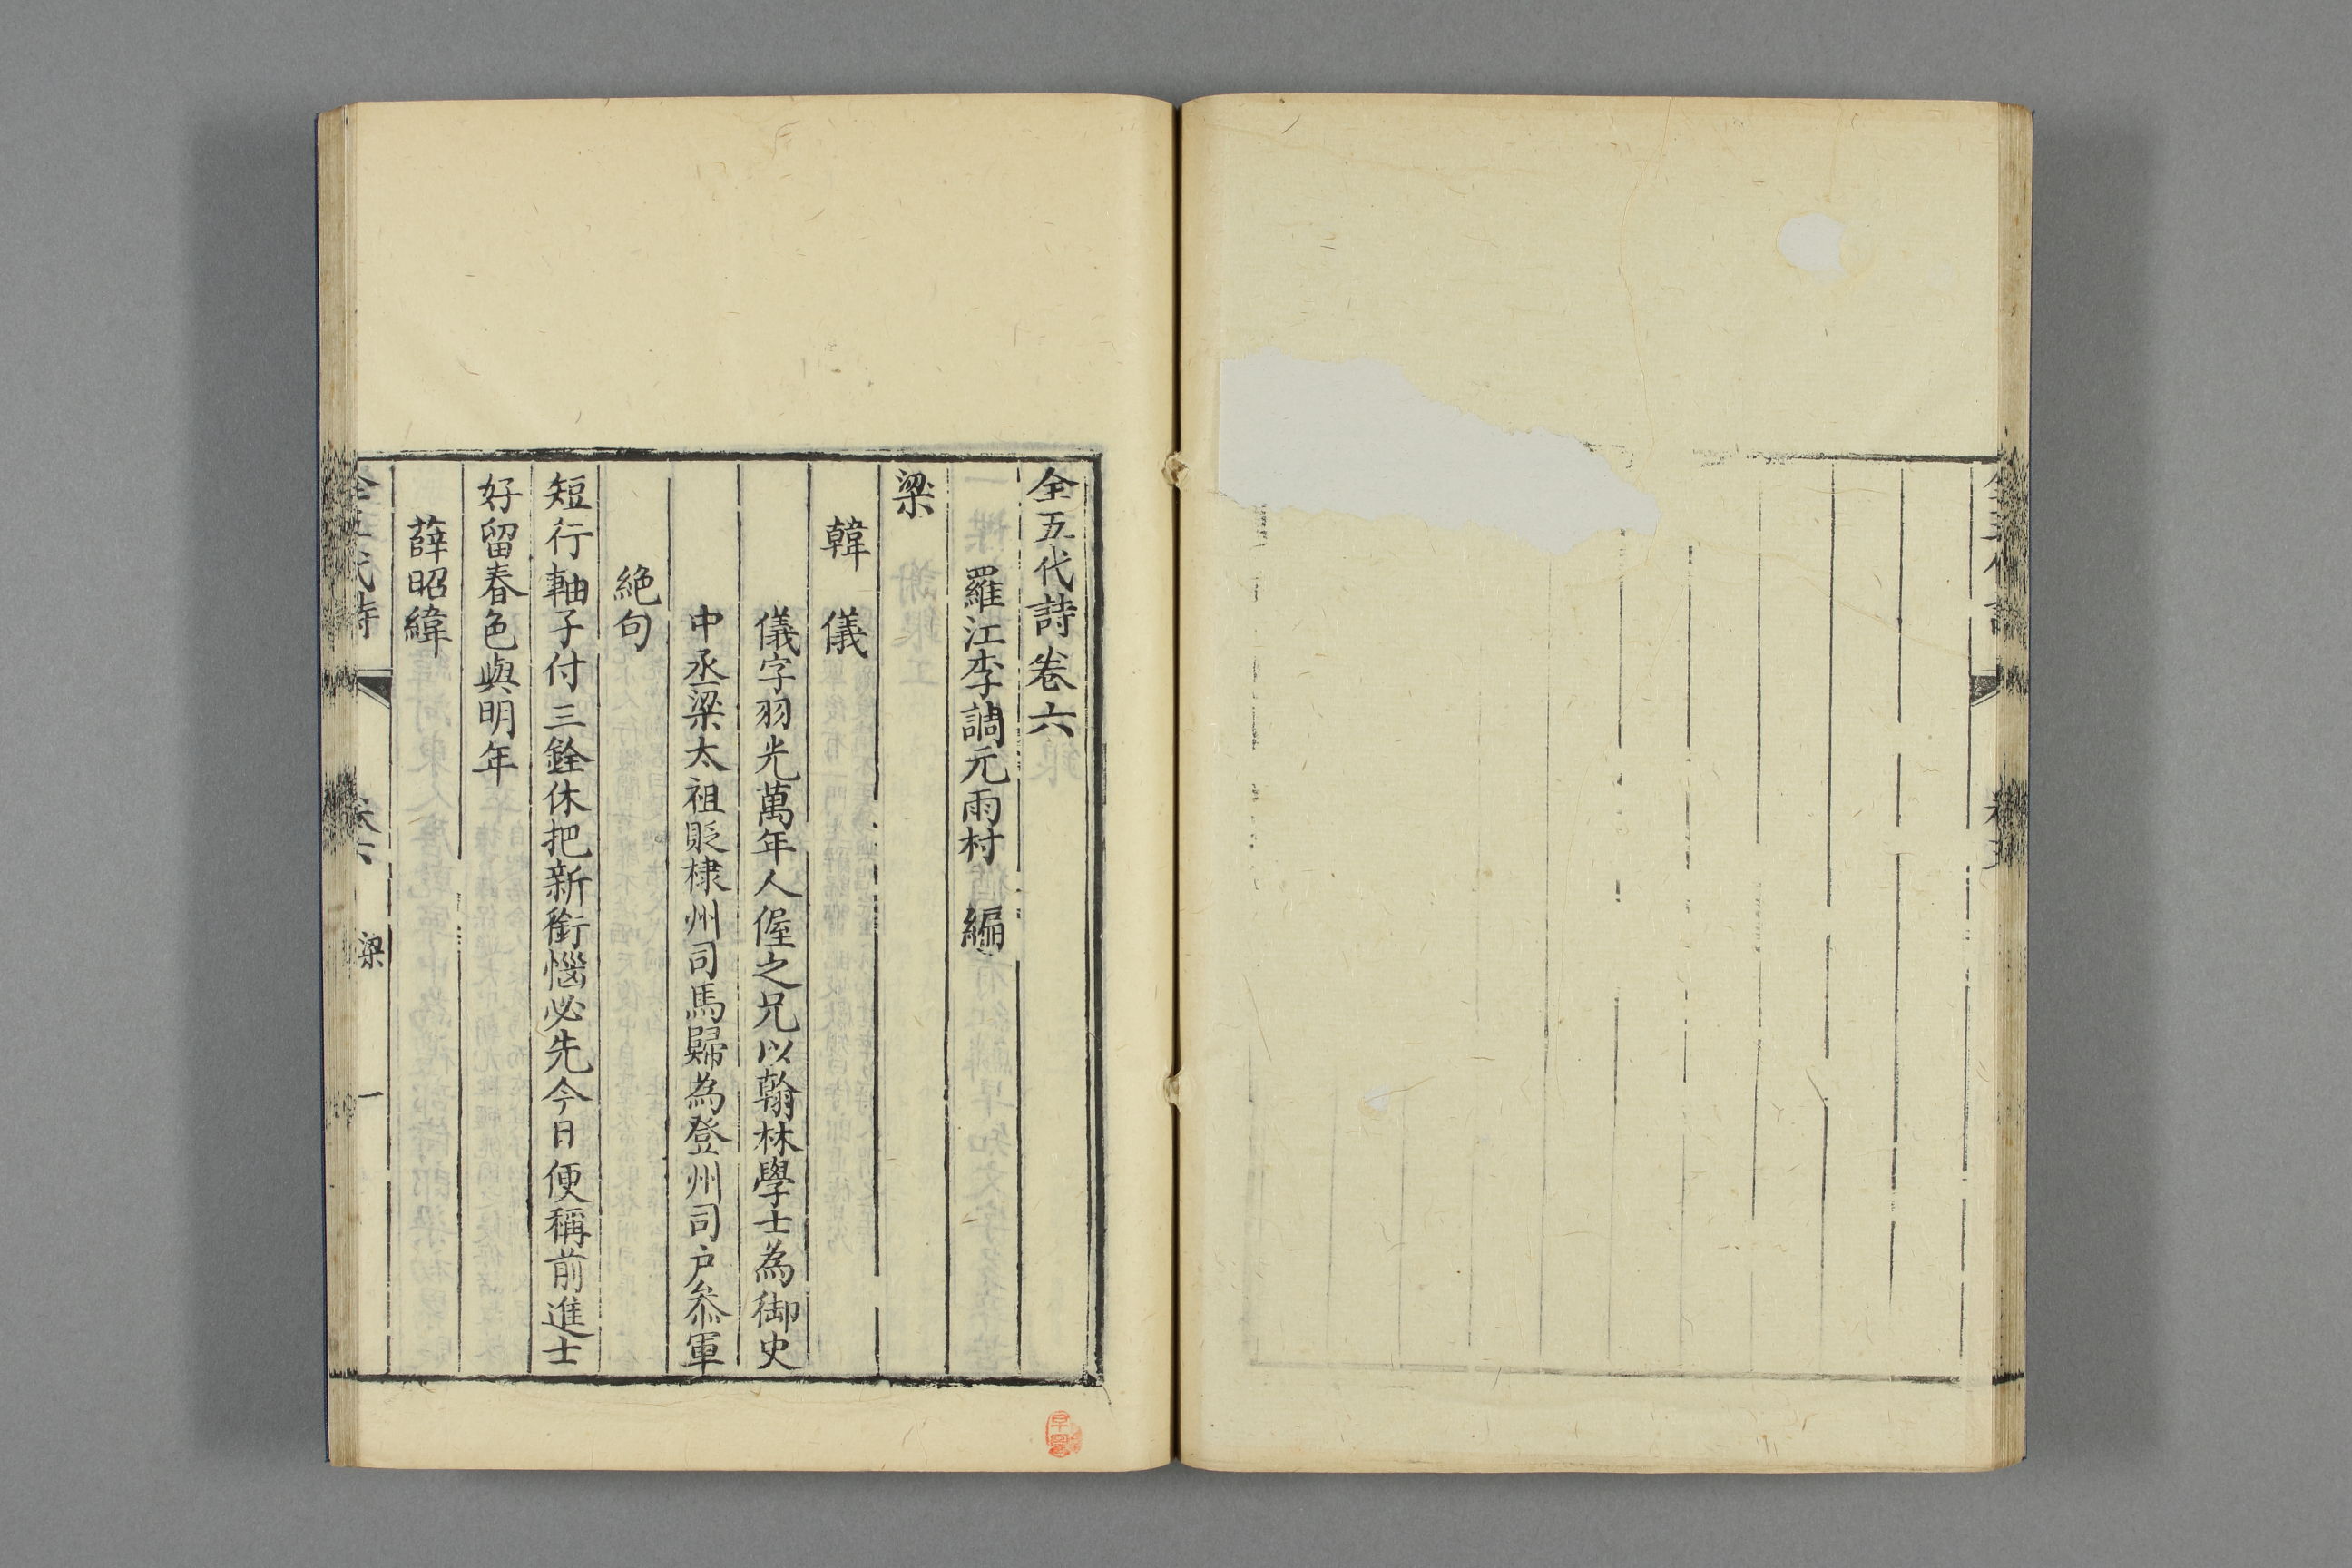 全五代詩卷六
羅江李調元雨村 編
梁
韓 儀
儀字羽光萬年人偓之兄以翰林學士為御史
中丞梁太祖貶棣州司馬歸為登州司户叅軍
絶句
短行軸子付三銓休把新銜惱必先今日便稱前進士
好留春色與明年
薛昭緯
全五代詩 卷六 梁 一